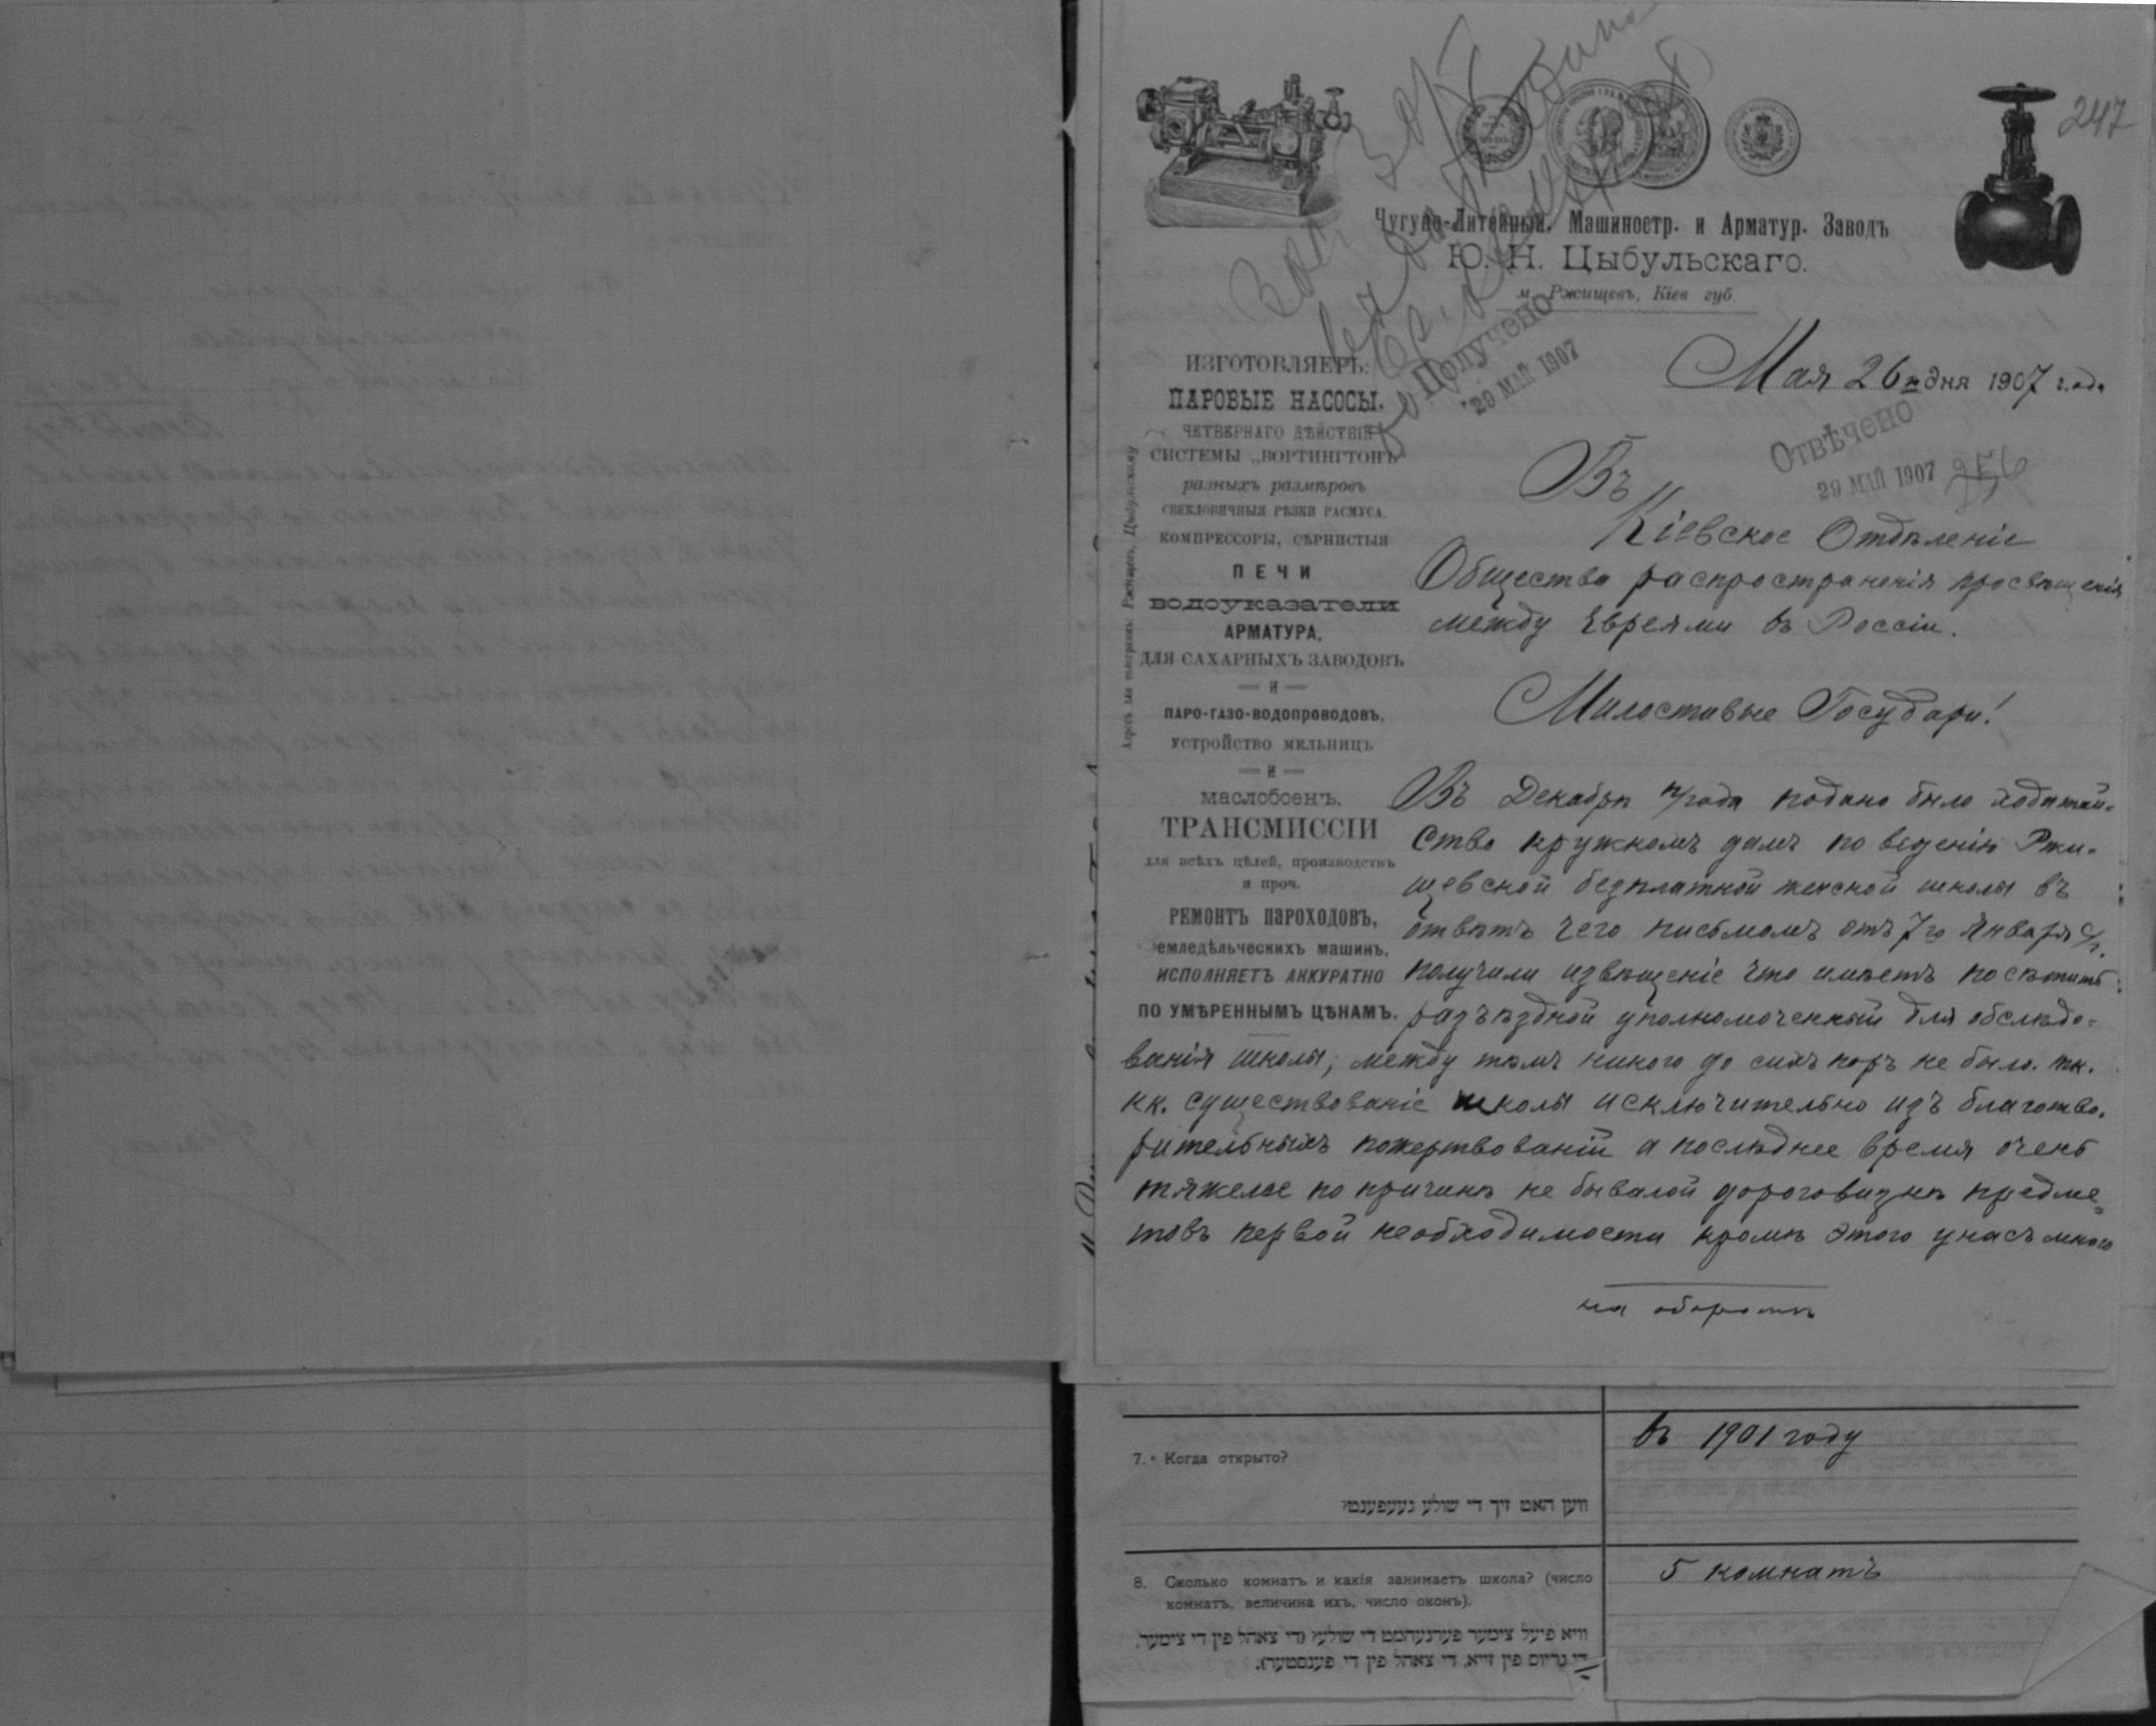 247
Чугуно-Литейный. Машиностр. и Арматур. Заводъ
Ю. Н. Цыбульскаго.
м. Ржищевъ, Кіев губ.
Получено
29 МАЙ 1907
Мая 26 дня 1907 года
Отвѣчено
29 МАЙ 1907 256
Въ
Кіевское Отдѣленіе
Общества распространенія просвѣщенія
между Евреями въ Россіи.
Милостивые Государи!
Адресъ для телеграмъ: Ржищевъ, Цыбульскому
ИЗГОТОВЛЯЕТЪ:
ПАРОВЫЕ НАСОСЫ,
ЧЕТВЕРНАГО ДѢЙСТВІЯ
СИСТЕМЫ „ВОРТИНГТОНЪ“
разныхъ размѣровъ
СВЕКЛОВИЧНЫЯ РѢЗКИ РАСМУСА.
КОМПРЕССОРЫ, СѢРНИСТЫЯ
ПЕЧИ
ВОДОУКАЗАТЕЛИ
АРМАТУРА,
ДЛЯ САХАРНЫХЪ ЗАВОДОВЪ
— И —
ПАРО-ГАЗО-ВОДОПРОВОДОВЪ,
УСТРОЙСТВО МЕЛЬНИЦЪ
— И —
МАСЛОБОЕНЪ.
ТРАНСМИССІИ
для всѣхъ цѣлей, производствъ
и проч.
РЕМОНТЪ ПАРОХОДОВЪ,
емледѣльческихъ машинъ,
ИСПОЛНЯЕТЪ АККУРАТНО
ПО УМѢРЕННЫМЪ ЦѢНАМЪ.
Въ Декабрѣ п/года подано было ходатай-
ство кружкомъ дамъ по веденію Ржи-
щевской безплатной женской школы въ
отвѣтъ чего письмомъ отъ 7го Января с/г.
получили извѣщеніе что имѣетъ посѣтить
разъѣздной уполномоченный для обслѣдо-
ванія школы; между тѣмъ никого до сихъ поръ не было. тк.
кк. существованіе школы исключительно изъ благотво-
рительныхъ пожертвованій а послѣднее время очень
тяжелое по причинѣ не бывалой дороговизнѣ предме-
товъ первой необходимости кромѣ этого у насъ много
на оборотѣ
7. Когда открыто?
въ 1901 году
ווען האט זיך די שולע געעפענט?
8. Сколько комнатъ и какія занимаетъ школа? (число
комнатъ, величина ихъ, число оконъ).
5 комнатъ
וויא פיעל צימער פערנעהמט די שולע? (די צאהל פין די צימער,
די גרויס פין זייא, די צאהל פין די פענסטער).